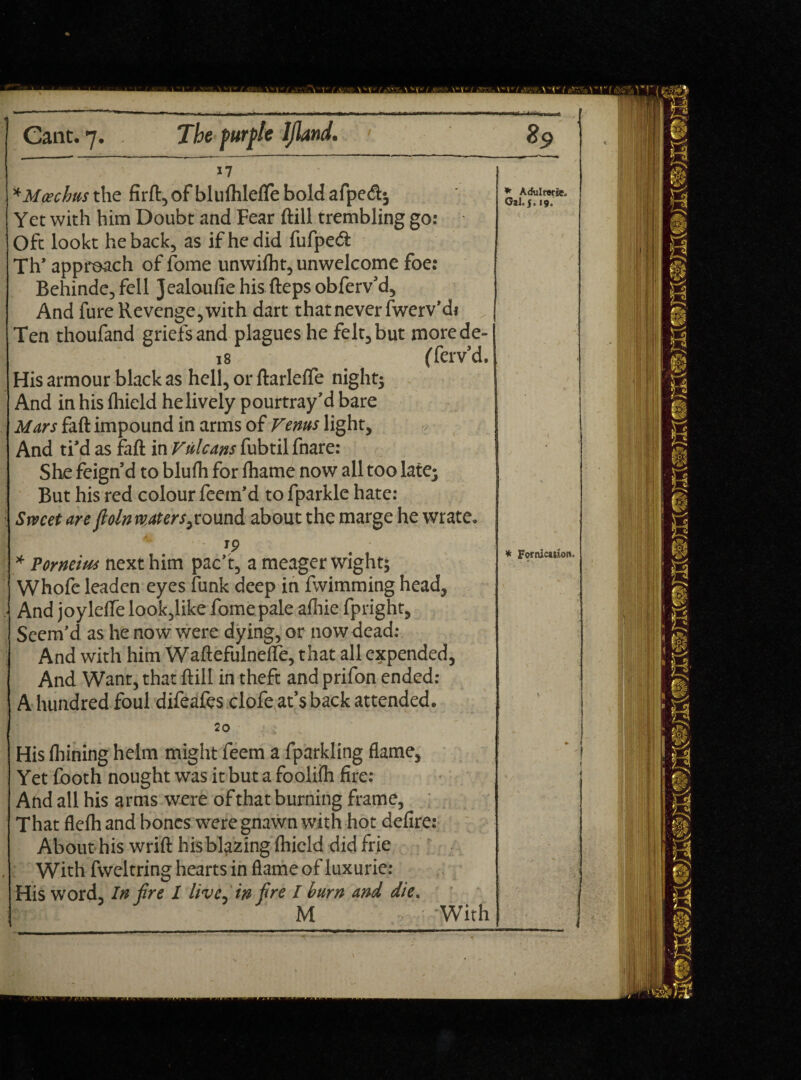 Cant. 7. The purple Iſland. 89
17
*Mœchus the firſt, of bluſhleſſe bold aſpect;
Yet with him Doubt and Fear ſtill trembling go:
Oft lookt he back, as if he did ſuſpect
Th' approach of ſome unwiſht, unwelcome foe:
Behinde, fell Jealouſie his ſteps obſerv'd,
And ſure Revenge, with dart that never ſwerv'd:
Ten thouſand griefs and plagues he felt, but more de-
18 (ſerv'd.
His armour black as hell, or ſtarleſſe night;
And in his ſhield he lively pourtray'd bare
Mars faſt impound in arms of Venus light,
And ti'd as faſt in Vulcans ſubtil ſnare:
She feign'd to bluſh for ſhame now all too late;
But his red colour ſeem'd to ſparkle hate:
Sweet are ſtoln waters, round about the marge he wrate.
19
* Porneius next him pac't, a meager wight;
Whoſe leaden eyes ſunk deep in ſwimming head,
And joyleſſe look, like ſome pale aſhie ſpright,
Seem'd as he now were dying, or now dead:
And with him Waſtefulneſſe, that all expended,
And Want, that ſtill in theft and priſon ended:
A hundred foul diſeaſes cloſe at's back attended.
20
His ſhining helm might ſeem a ſparkling flame,
Yet ſooth nought was it but a fooliſh fire:
And all his arms were of that burning frame,
That fleſh and bones were gnawn with hot deſire:
About his wriſt his blazing ſhield did frie
With ſweltring hearts in flame of luxurie:
His word, In fire I live, in fire I burn and die.
M With
* Adulterie.
Gal. 5. 19.
* Fornication.